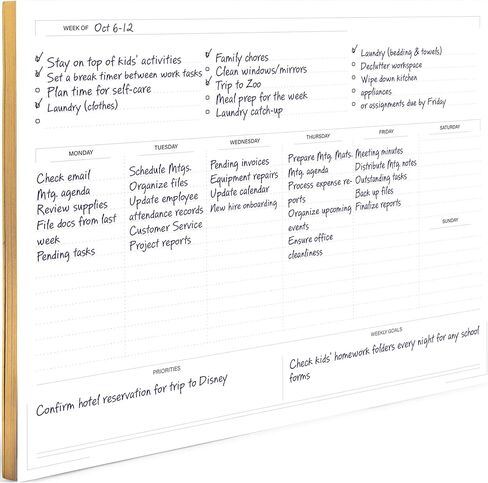 WEEK OF Oct 6-12
Stay on top of kids' activities
Set a break timer between work tasks
Plan time for self-care
Laundry (clothes)
Family chores
Clean windows/mirrors
Trip to Zoo
Meal prep for the week
Laundry catch-up
Laundry (bedding & towels)
Declutter workspace
Wipe down kitchen
appliances
or assignments due by Friday
MONDAY
Check email
Mtg. agenda
Review supplies
File docs from last
week
Pending tasks
TUESDAY
Schedule Mtgs.
Organize files
Update employee
attendance records
Customer Service
Project reports
WEDNESDAY
Pending invoices
Equipment repairs
Update calendar
New hire onboarding
THURSDAY
Prepare Mtg. Mats.
Mtg. agenda
Process expense re-
ports
Organize upcoming
events
Ensure office
cleanliness
FRIDAY
Meeting minutes
Distribute Mtg. notes
Outstanding tasks
Back up files
Finalize reports
SATURDAY
SUNDAY
PRIORITIES
Confirm hotel reservation for trip to Disney
WEEKLY GOALS
Check kids' homework folders every night for any school
forms